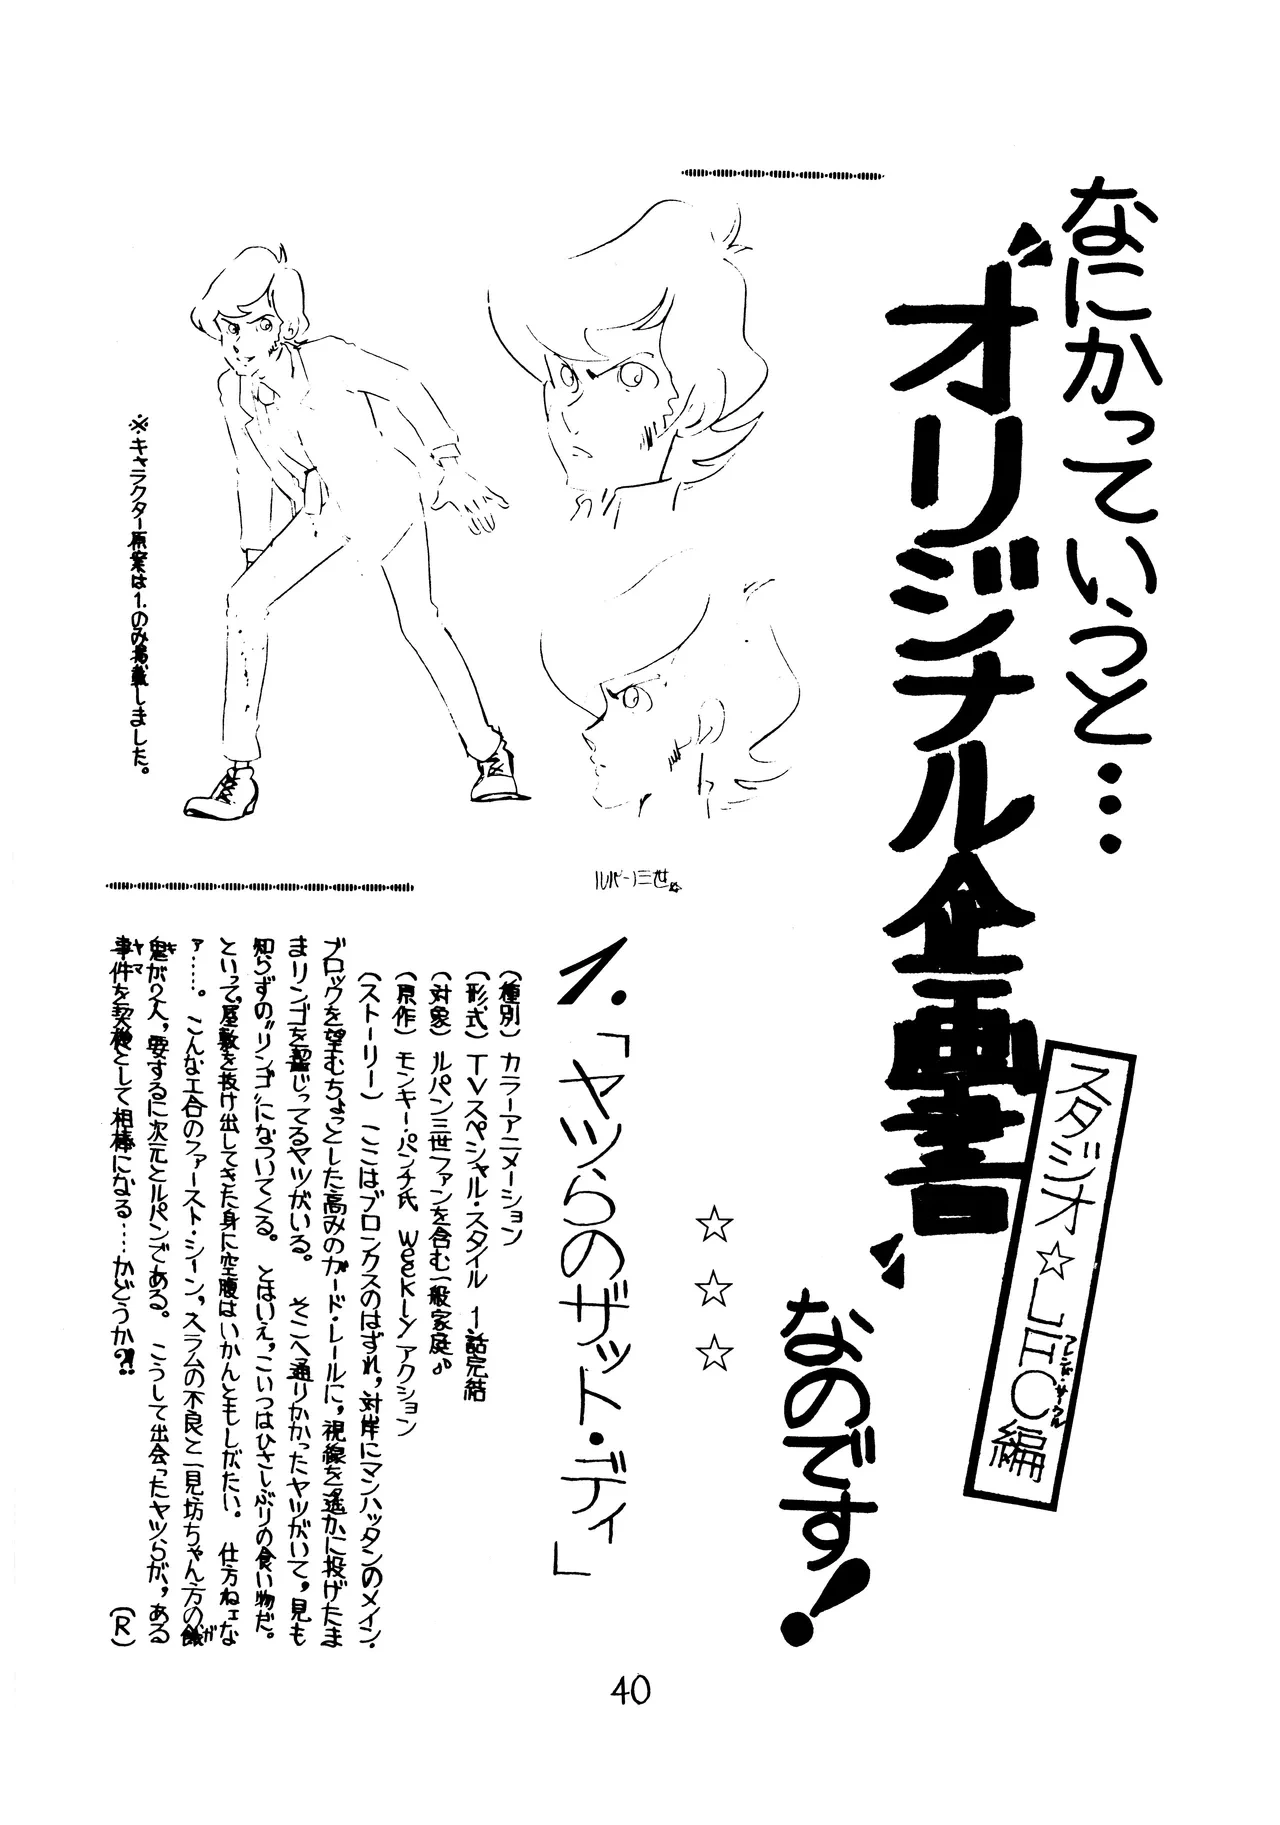 なにかっていうと…
"オリジナル企画書"
スタジオ☆LHC編
フレンド・サークル
なのです!
☆☆☆
※キャラクター原案は1.のみ掲載しました。
ルパン三世
1.「ヤツらのザット・ディ」
(種別)カラーアニメーション
(形式)TVスペシャル・スタイル 1話完結
(対象)ルパン三世ファンを含む一般家庭♪
(原作)モンキー・パンチ氏 Weeklyアクション
(ストーリー) ここはブロンクスのはずれ,対岸にマンハッタンのメイン・
ブロックを望むちょっとした高みのガード・レールに,視線を遙かに投げたま
まリンゴを齧じってるヤツがいる。 そこへ通りかかったヤツがいて,見も
知らずの"リンゴ"になついてくる。 とはいえ,こいつはひさしぶりの食い物だ。
といって,屋敷を抜け出してきた身に空腹はいかんともしがたい。 仕方ねェな
ァ……。 こんな工合のファースト・シーン,スラムの不良と一見坊ちゃん方の餓ガ
鬼キが2人,要するに次元とルパンである。 こうして出会ったヤツらが,ある
事件ヤマを契機として相棒になる……かどうか?!
(R)
40